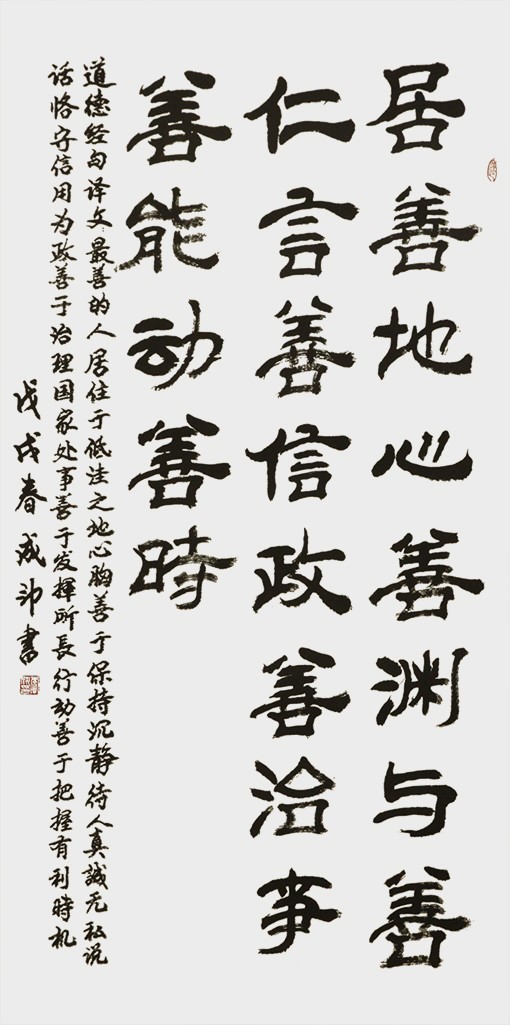 居善地心善渊与善
仁言善信政善治事
善能动善時
道德经句译文最善的人居住于低洼之地心胸善于保持沉静待人真誠无私说
话恪守信用为政善于治理国家处事善于发揮所長行动善于把握有利時机
戊戌春成書